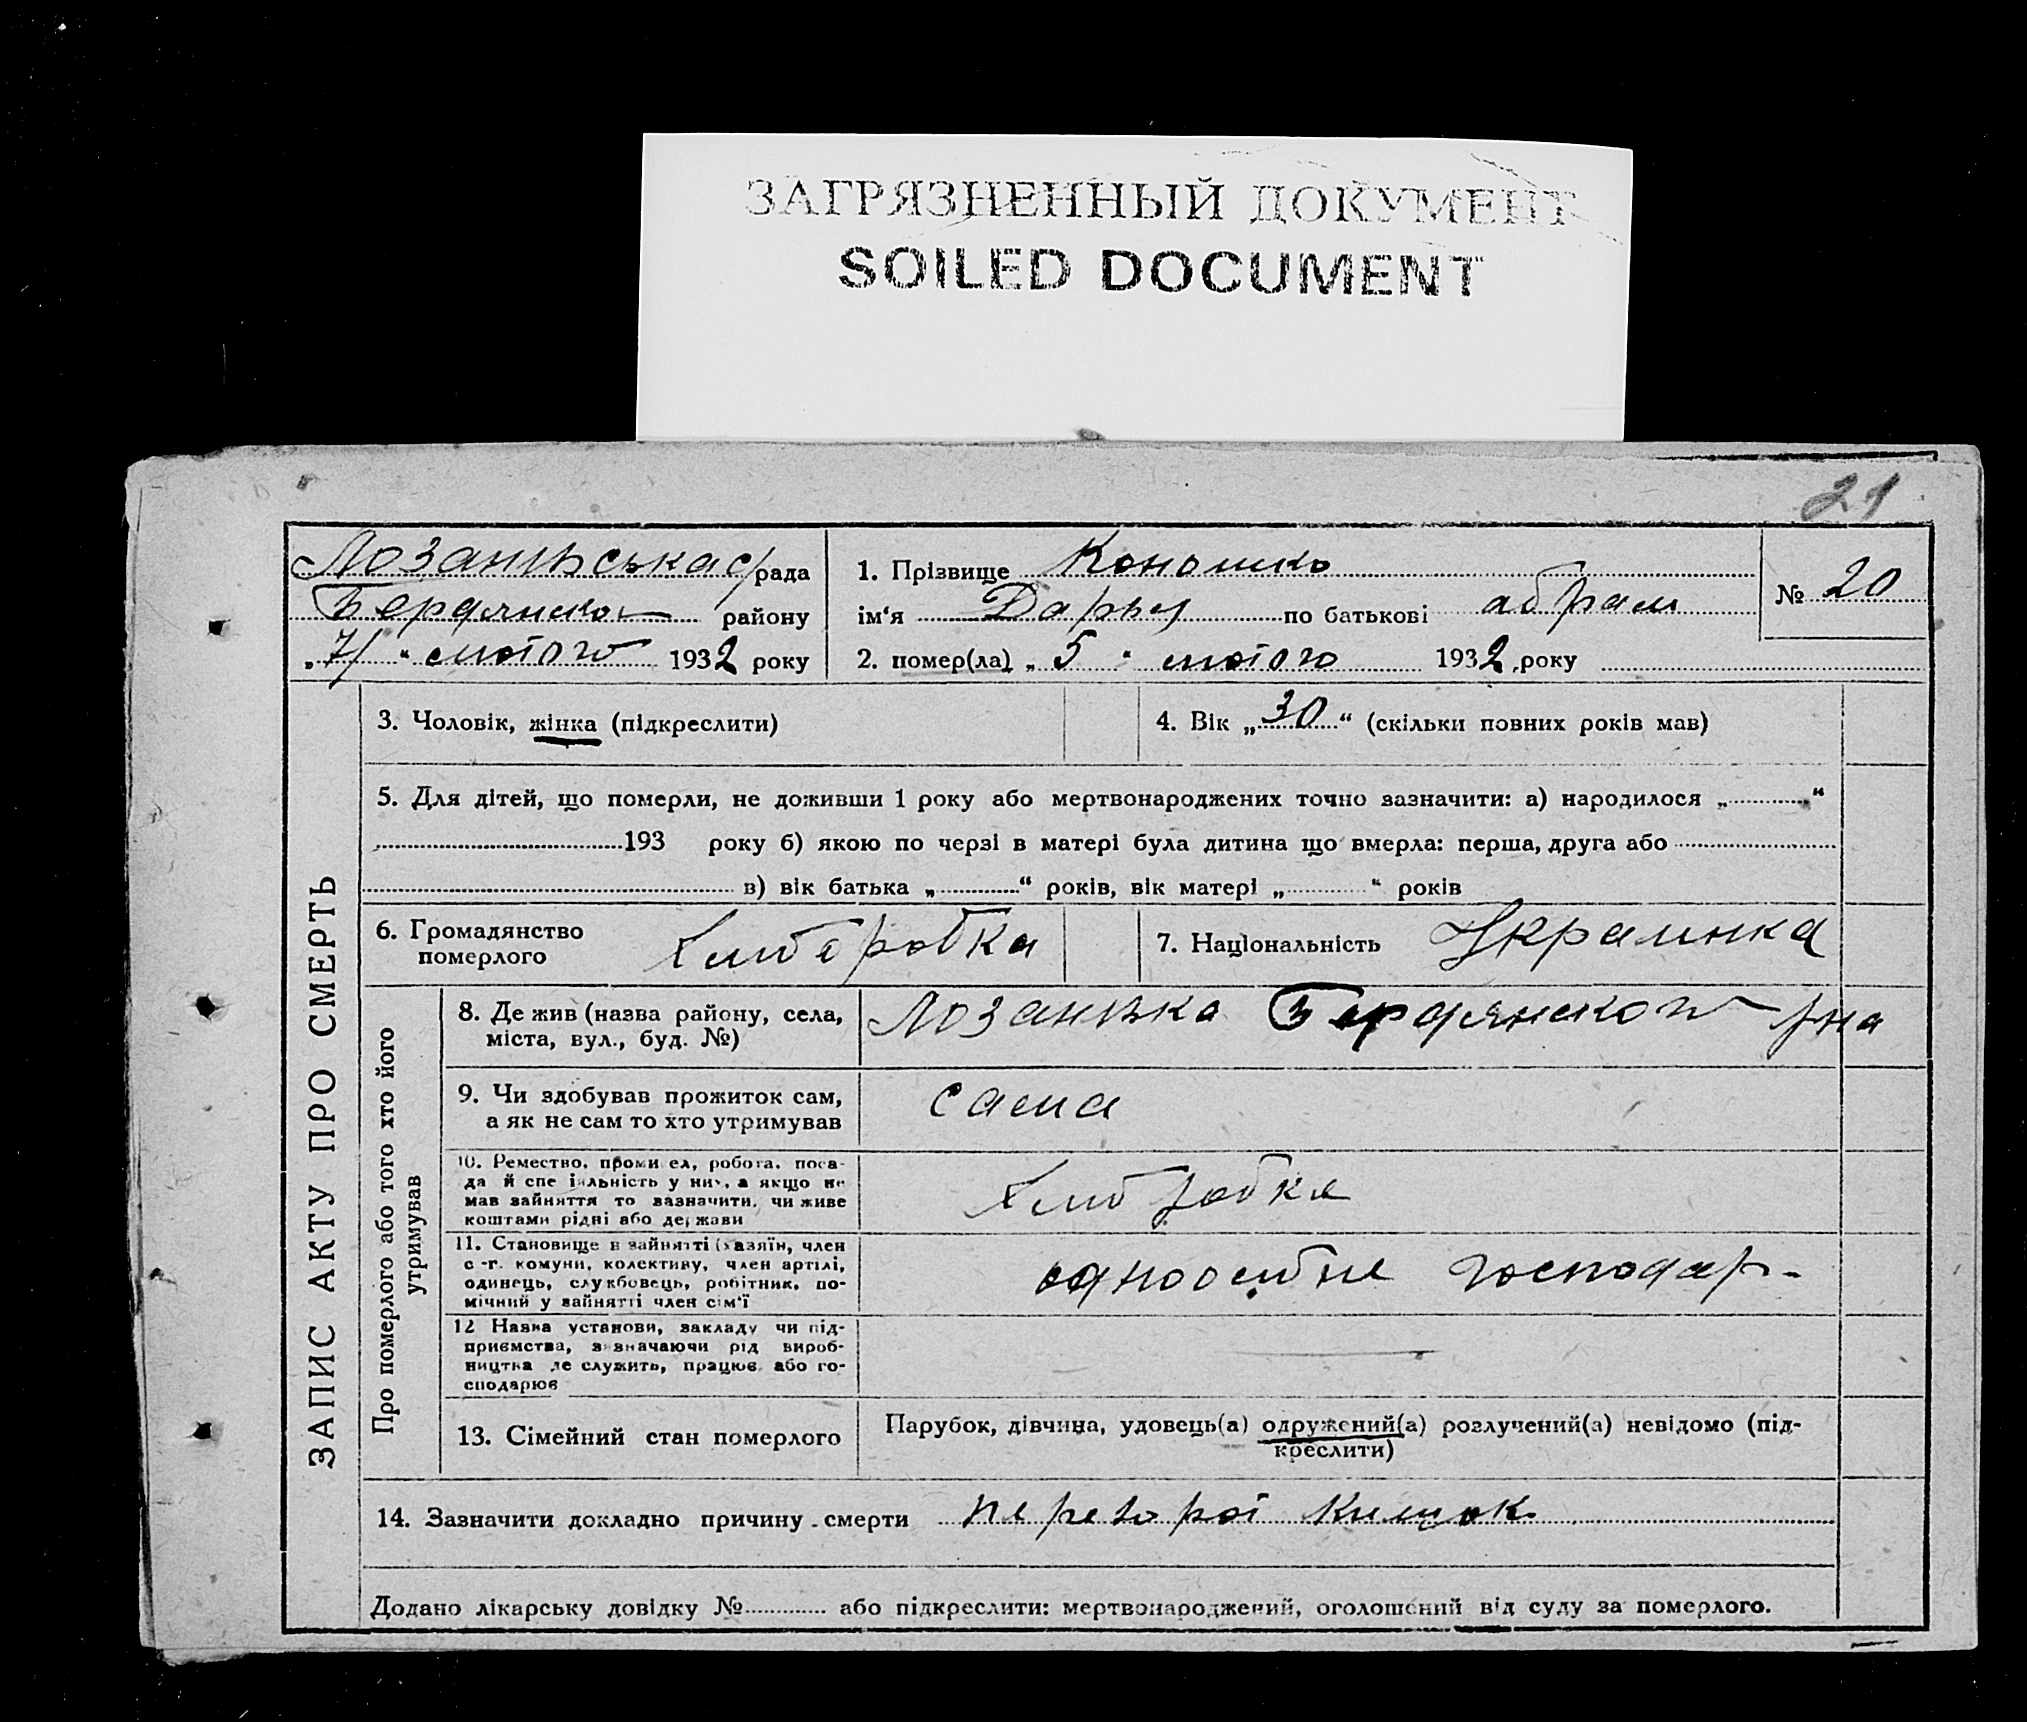 ЗАГРЯЗНЕННЫЙ ДОКУМЕНТ
SOILED DOCUMENT
21
Лозанівська с/рада
району
"7/" лютого 1932 року
1. Прізвище Кономко
ім'я Дарья по батькові абрам
№ 20
2. помер(ла) „5" лютого 1932 року
ЗАПИС АКТУ ПРО СМЕРТЬ
3. Чоловік, жінка (підкреслити)
4. Вік „30" (скільки повних років мав)
5. Для дітей, що померли, не доживши 1 року або мертвонароджених точно зазначити: а) народилося „ "
193 року б) якою по черзі в матері була дитина що вмерла: перша, друга або
в) вік батька „ " років, вік матері „ " років
6. Громадянство
померлого
7. Національність Украинка
Про померлого або того хто його
утримував
8. Де жив (назва району, села,
міста, вул., буд. №)
Лозанівка р-на
9. Чи здобував прожиток сам,
а як не сам то хто утримував
сама
10. Ремество, промисел, робота, поса-
да й спеціяльність у них, а якщо не
мав зайняття то зазначити, чи живе
коштами рідні або держави
11. Становище в зайнятті (хазяїн, член
с.-г. комуни, колективу, член артілі,
одинець, службовець, робітник, по-
мічний у зайнятті член сім'ї
господар-
12 Назва установи, закладу чи під-
приємства, зазначаючи рід вироб-
ництва де служить, працює або го-
сподарює
13. Сімейний стан померлого
Парубок, дівчина, удовець(а) одружений(а) розлучений(а) невідомо (під-
креслити)
14. Зазначити докладно причину смерти
Додано лікарську довідку № або підкреслити: мертвонароджений, оголошений від суду за померлого.